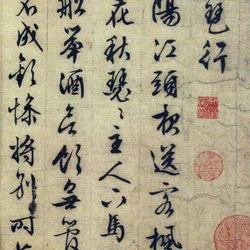 琶行
陽江頭夜送客楓
花秋瑟〻主人下馬
船舉酒欲飲無管
不成歡慘將別時